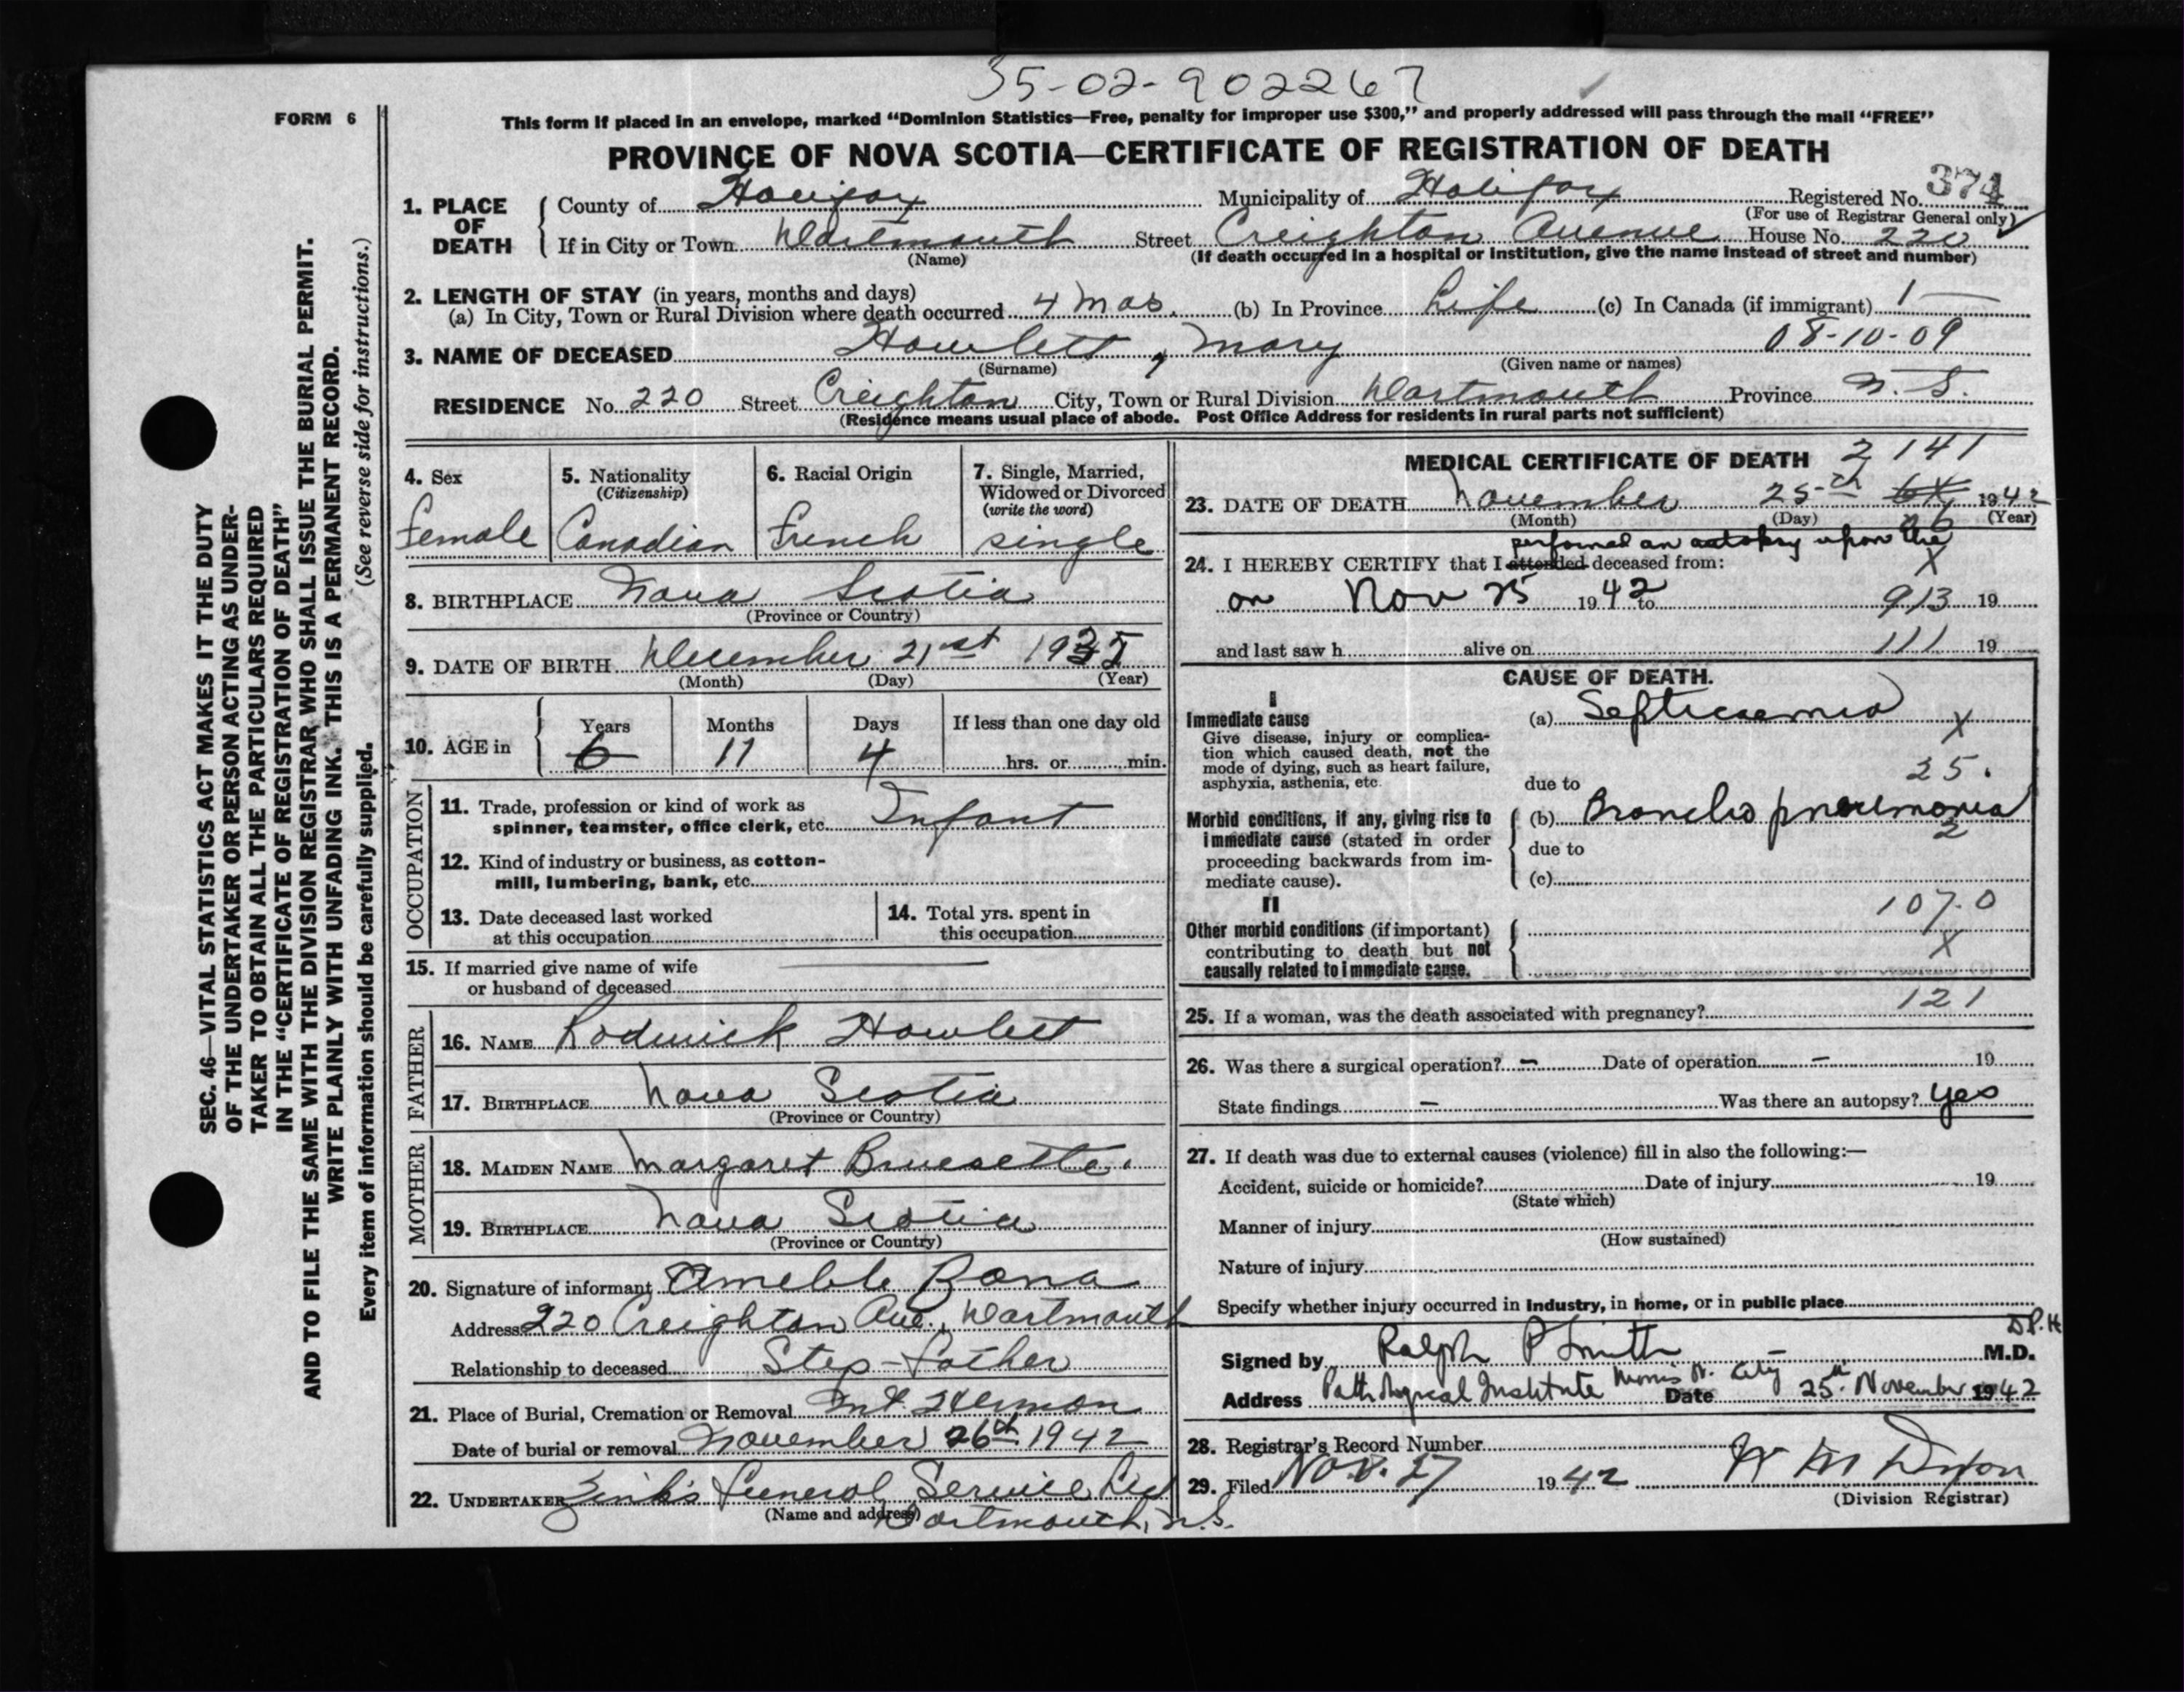 35-02-902267
FORM 6
This form if placed in an envelope, marked “Dominion Statistics—Free, penalty for improper use $300,” and properly addressed will pass through the mail “FREE”
PROVINCE OF NOVA SCOTIA—CERTIFICATE OF REGISTRATION OF DEATH
1. PLACE OF DEATH County of Halifax Municipality of Halifax Registered No. 374
(For use of Registrar General only)
If in City or Town Dartmouth Street Creighton Avenue House No. 220
(Name) (If death occurred in a hospital or institution, give the name instead of street and number)
2. LENGTH OF STAY (in years, months and days)
(a) In City, Town or Rural Division where death occurred 4 mos. (b) In Province Life (c) In Canada (if immigrant) 1
08-10-09
3. NAME OF DECEASED Howlett, Mary
(Surname) (Given name or names)
RESIDENCE No. 220 Street Creighton City, Town or Rural Division Dartmouth Province N. S.
(Residence means usual place of abode. Post Office Address for residents in rural parts not sufficient)
4. Sex
Female
5. Nationality
(Citizenship)
Canadian
6. Racial Origin
French
7. Single, Married,
Widowed or Divorced
(write the word)
single
8. BIRTHPLACE Nova Scotia
(Province or Country)
9. DATE OF BIRTH December 21st 1935
(Month) (Day) (Year)
10. AGE in
Years Months Days If less than one day old
6 11 4 hrs. or min.
OCCUPATION
11. Trade, profession or kind of work as
spinner, teamster, office clerk, etc. Infant
12. Kind of industry or business, as cotton-
mill, lumbering, bank, etc.
13. Date deceased last worked
at this occupation
14. Total yrs. spent in
this occupation
15. If married give name of wife
or husband of deceased
FATHER
16. NAME Roderick Howlett
17. BIRTHPLACE Nova Scotia
(Province or Country)
MOTHER
18. MAIDEN NAME Margaret
19. BIRTHPLACE Nova Scotia
(Province or Country)
20. Signature of informant Bona
Address 220 Creighton Ave., Dartmouth
Relationship to deceased Step-father
21. Place of Burial, Cremation or Removal Mt Hermon
Date of burial or removal November 26th 1942
22. UNDERTAKER Zink's Funeral Service Ltd
(Name and address) Dartmouth, N.S.
MEDICAL CERTIFICATE OF DEATH 2 141
23. DATE OF DEATH November 25th 1942
(Month) (Day) (Year)
26
performed an autopsy upon the
24. I HEREBY CERTIFY that I attended deceased from: X
on Nov 25 1942 to 913 19
and last saw h alive on 111 19
CAUSE OF DEATH.
I
Immediate cause
Give disease, injury or complica-
tion which caused death, not the
mode of dying, such as heart failure,
asphyxia, asthenia, etc.
(a) Septicaemia X
25.
due to
Morbid conditions, if any, giving rise to
immediate cause (stated in order
proceeding backwards from im-
mediate cause).
(b) Broncho pneumonia
2
due to
(c)
II
107.0
Other morbid conditions (if important)
contributing to death but not
causally related to immediate cause.
X
121
25. If a woman, was the death associated with pregnancy?
26. Was there a surgical operation? – Date of operation – 19
State findings – Was there an autopsy? yes
27. If death was due to external causes (violence) fill in also the following:—
Accident, suicide or homicide? Date of injury 19
(State which)
Manner of injury
(How sustained)
Nature of injury
Specify whether injury occurred in industry, in home, or in public place
D.P.H
Signed by Ralph P Smith M.D.
Address Pathological Institute Morris St. City Date 25th November 1942
28. Registrar's Record Number
29. Filed Nov. 27 1942
(Division Registrar)
SEC. 46—VITAL STATISTICS ACT MAKES IT THE DUTY
OF THE UNDERTAKER OR PERSON ACTING AS UNDER-
TAKER TO OBTAIN ALL THE PARTICULARS REQUIRED
IN THE “CERTIFICATE OF REGISTRATION OF DEATH”
AND TO FILE THE SAME WITH THE DIVISION REGISTRAR WHO SHALL ISSUE THE BURIAL PERMIT.
WRITE PLAINLY WITH UNFADING INK. THIS IS A PERMANENT RECORD.
Every item of information should be carefully supplied. (See reverse side for instructions.)